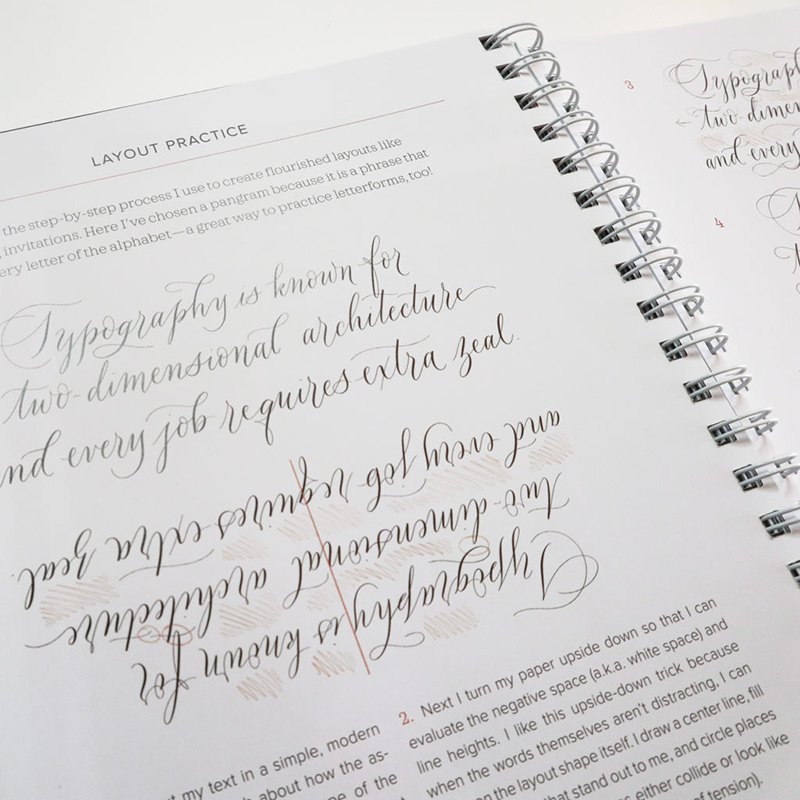 LAYOUT PRACTICE
the step-by-step process I use to create flourished layouts like
invitations. Here I've chosen a pangram because it is a phrase that
ery letter of the alphabet—a great way to practice letterforms, too!
Typography is known for
two-dimensional architecture
and every job requires extra zeal.
Typography is known for
two-dimensional architecture
and every job requires extra zeal.
t my text in a simple, modern
about how the as-
ne of the
2. Next I turn my paper upside down so that I can
evaluate the negative space (a.k.a. white space) and
line heights. I like this upside-down trick because
when the words themselves aren't distracting, I can
on the layout shape itself. I draw a center line, fill
that stand out to me, and circle places
s either collide or look like
of tension).
3
Typograph
two-dimen
and every
4